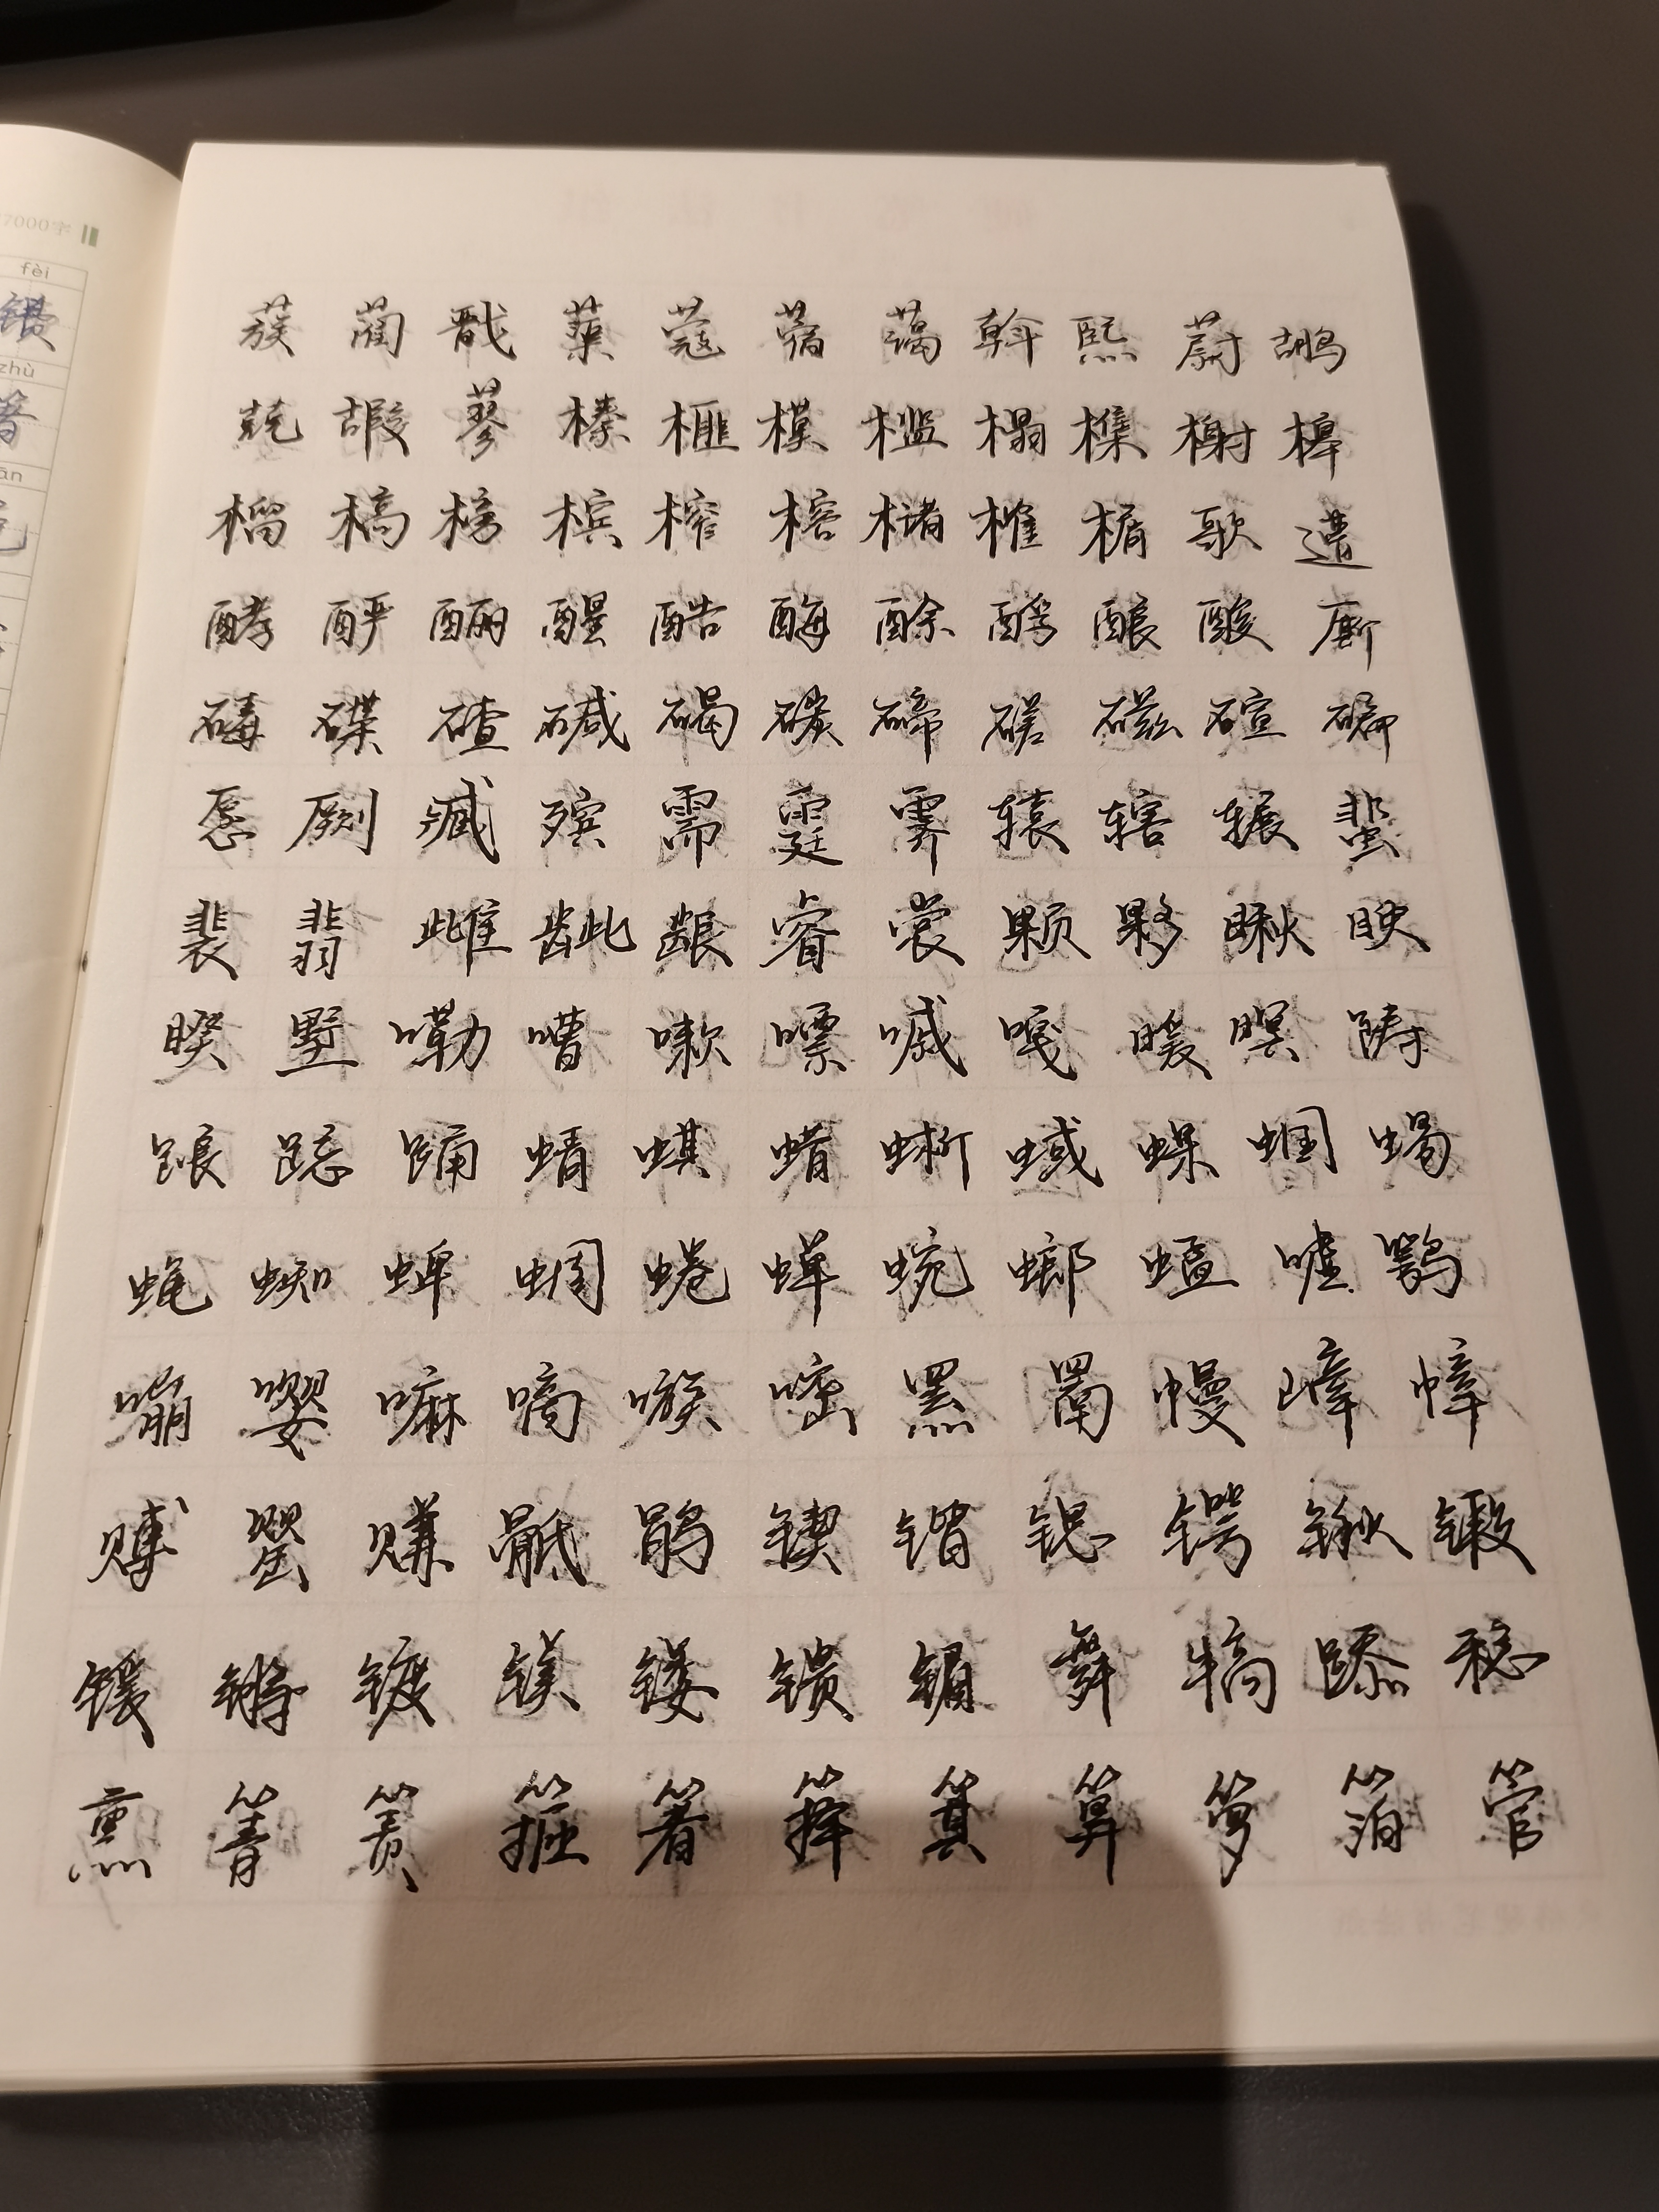 7000字
fèi
镄
zhù
箸
蔟 蔺 戬 蕖 蔻 蓿 蔼 斡 熙 蔚 鹕
兢 嘏 蓼 榛 榧 模 槛 榻 榫 榭 槔
榴 槁 榜 槟 榨 榕 槠 榷 榍 歌 遭
酵 酽 酾 酲 酷 酶 酴 酹 酿 酸 厮
碡 碟 碴 碱 碣 碳 碲 磋 磁 碹 碥
愿 劂 臧 殡 需 霆 霁 辕 辖 辗 蜚
裴 翡 雌 龇 龈 睿 裳 颗 夥 瞅 瞍
睽 墅 嘞 嘈 嗽 嘌 嘁 嘎 暧 暝 踌
踉 跽 踊 蜻 蜞 蜡 蜥 蜮 蜾 蝈 蜴
蝇 蜘 蜱 蜩 蜷 蝉 蜿 螂 蜢 嘘 鹗
嘣 嘤 嘛 嘀 嗾 嘧 罴 罱 幔 嶂 幛
赙 罂 赚 骶 鹘 锲 锴 锶 锷 锹 锻
锾 锵 镀 镁 镂 镄 镅 舞 犒 舔 稳
熏 箐 箦 箍 箸 箨 箕 算 箩 箔 管